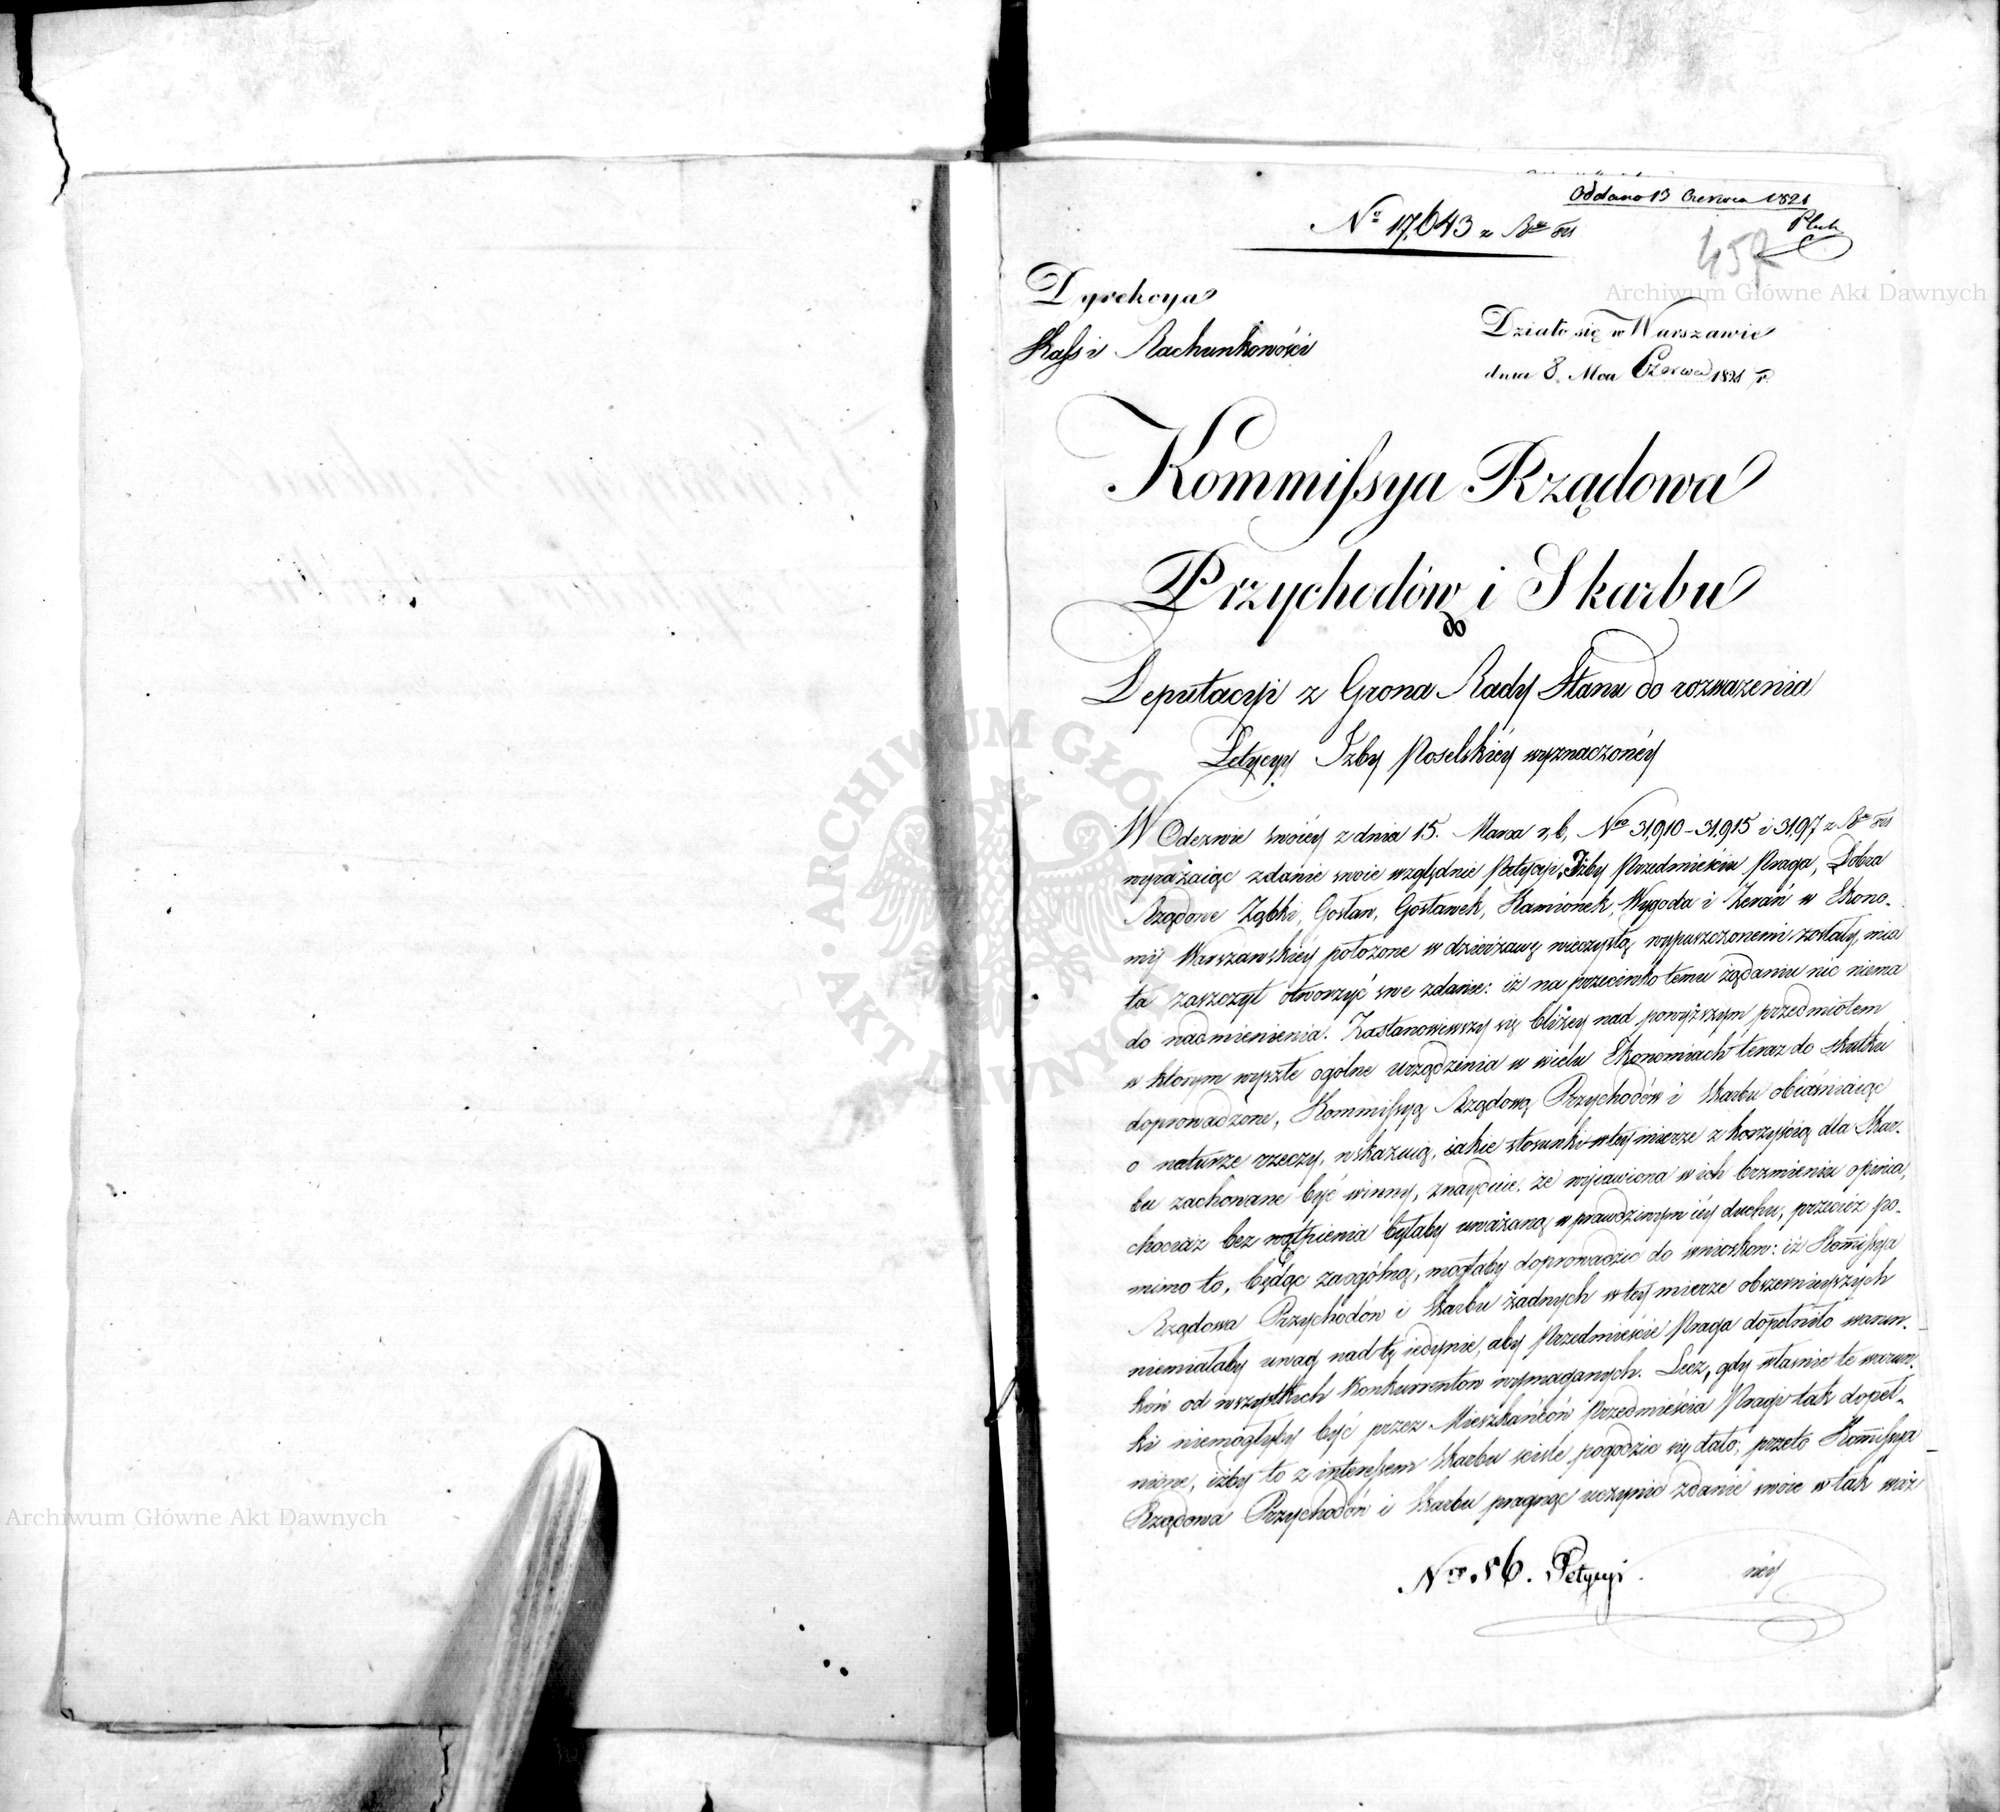 Oddano 13 Czerwca 1821
Nro 17,643 z Bru
457
Dyrekcya
Kass i Rachunkowości
Archiwum Główne Akt Dawnych
Działo się w Warszawie
dnia 8. Mca Czerwca 1821 r.
Kommissya Rządowa
Przychodów i Skarbu
do
Deputacyi z Grona Rady Stanu do rozważenia
Petycyy Izby Poselskiéy wyznaczonéy
W Odezwie swoiéy z dnia 15. Marca r, b, Nro 31,910-31,915 i 31,917 z Bru
wyrażaiąc zdanie swoie względnie Petycyi, Iżby Przedmieściu Praga, Dobra
Rządowe Ząbki, Gocław, Gocławek, Kamionek, Wygoda i Zerań w Ekono-
mij Warszawskiey położone w dzierżawę wieczystą wypuszczonemi zostały, mia
ła zaszczyt otworzyć swe zdanie: iż na przeciwko temu żądaniu nic niema
do nadmienienia. Zastanowiwszy się bliżey nad powyższym przedmiotem
w którym wyszłe ogólne urządzenia w wielu Ekonomiach teraz do skutku
doprowadzone, Kommissyą Rządową Przychodów i Skarbu obiaśniaiąc
o naturze rzeczy, wskazuią, iakie stosunki w téy mierze z korzyścią dla Skar-
bu zachowane być winny, znayduie, że wyiawiona w ich brzmieniu opinia,
chociaż bez wątpienia byłaby uważaną w prawdziwym iéy duchu, przecież po-
mimo to, będąc zaogólną, mogłaby doprowadzić do wniosków: iż Kommissya
Rządowa Przychodów i Skarbu żadnych w téy mierze obszernieyszych
niemiałaby uwag nad tę iedynie, aby Przedmieście Praga dopełniło warun-
ków od wszystkich konkurrentów wymaganych. Lecz, gdy właśnie te warun-
ki niemogłyby być przez Mieszkańców Przedmieścia Pragi tak dopeł-
nione, iżby to z interessem Skarbu ściśle pogodzić się dało; przeto Kommissya
Rządowa Przychodów i Skarbu pragnąc uczynić zdanie swoie w tak waż
néy
Nro 86. Petycyi.
Archiwum Główne Akt Dawnych
ARCHIWUM GŁÓWNE AKT DAWNYCH